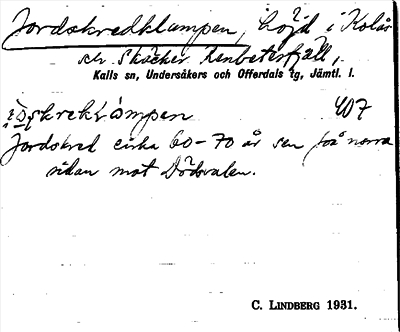 Jordskredklumpen, höjd i Kolås-
och Skäcker Renbetesfjäll,
Kalls sn, Undersåkers och Offerdals tg, Jämtl. l.
407
Jordskred cirka 60-70 år sen på norra
sidan mot Dödsvalen.
C. LINDBERG 1931.